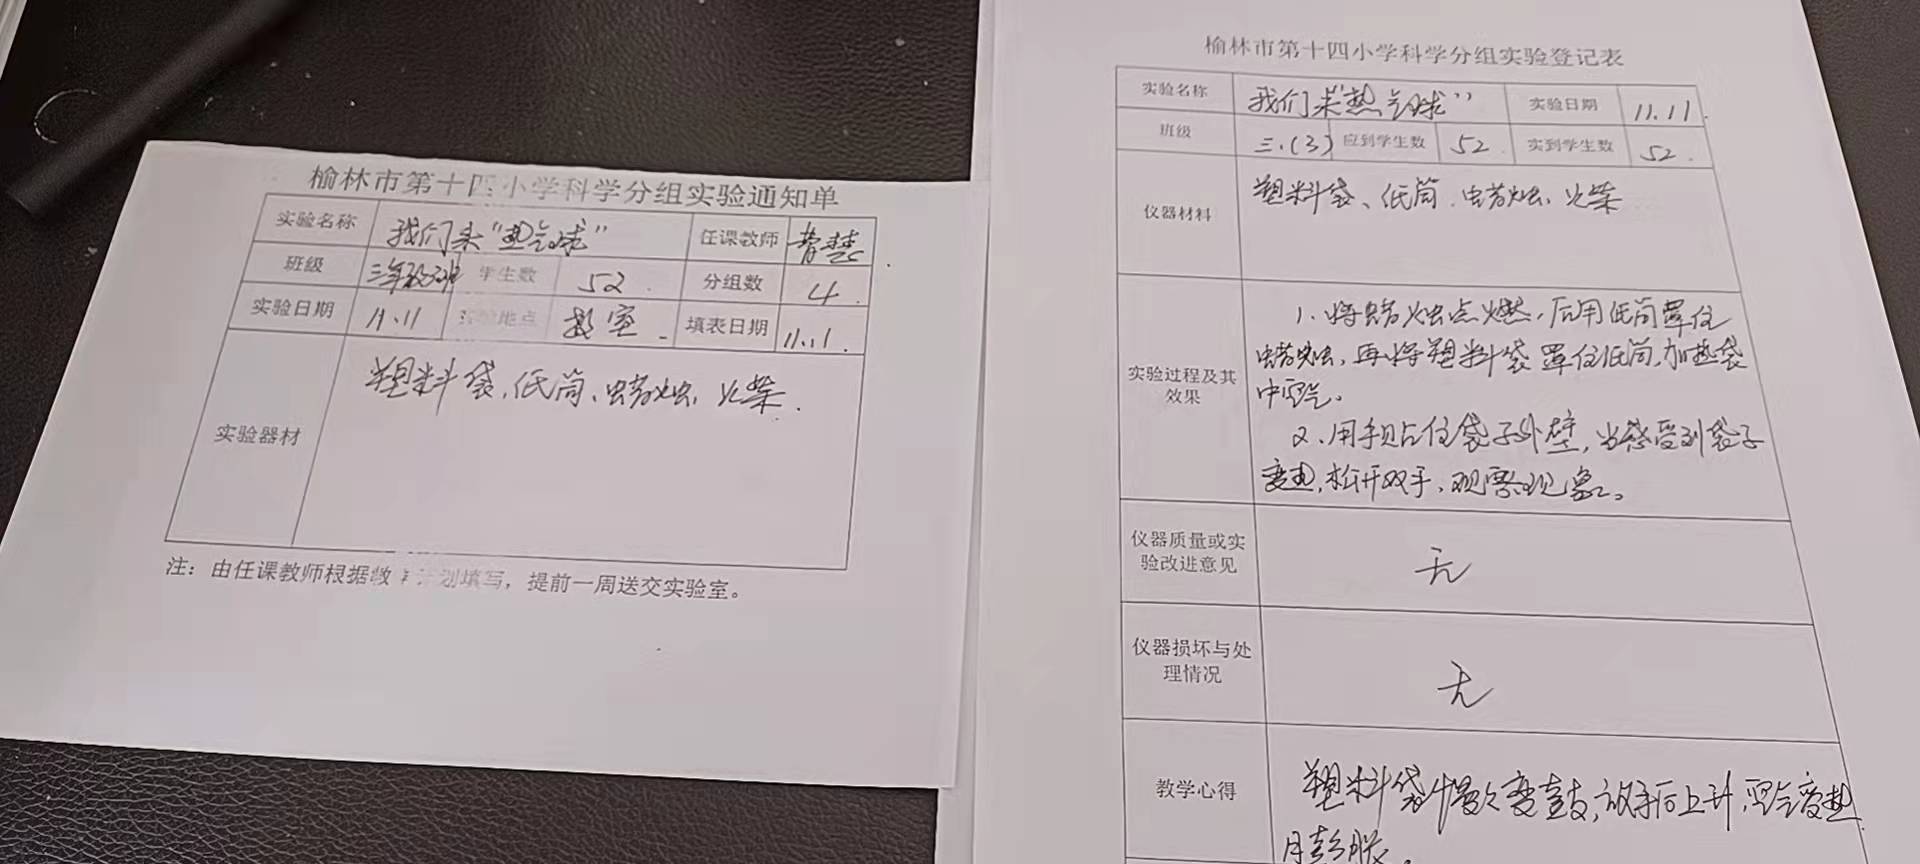 榆林市第十四小学科学分组实验通知单
实验名称 我们来“热气球” 任课教师 曹慧
班级 三年级3班 学生数 52 分组数 4
实验日期 11.11 实验地点 教室 填表日期 11.1
实验器材 塑料袋、低筒、蜡烛、火柴.
注：由任课教师根据教学计划填写，提前一周送交实验室。
榆林市第十四小学科学分组实验登记表
实验名称 我们来“热气球” 实验日期 11.11
班级 三.(3) 应到学生数 52 实到学生数 52
仪器材料 塑料袋、低筒、蜡烛、火柴
实验过程及其
效果
1、将蜡烛点燃，后用低筒罩住
蜡烛，再将塑料袋罩住低筒，加热袋
中空气。
2、用手贴住袋子外壁，当感受到袋子
变热，松开双手，观察现象。
仪器质量或实
验改进意见
无
仪器损坏与处
理情况
无
教学心得
塑料袋慢慢变鼓，放手后上升，空气变热
膨胀。